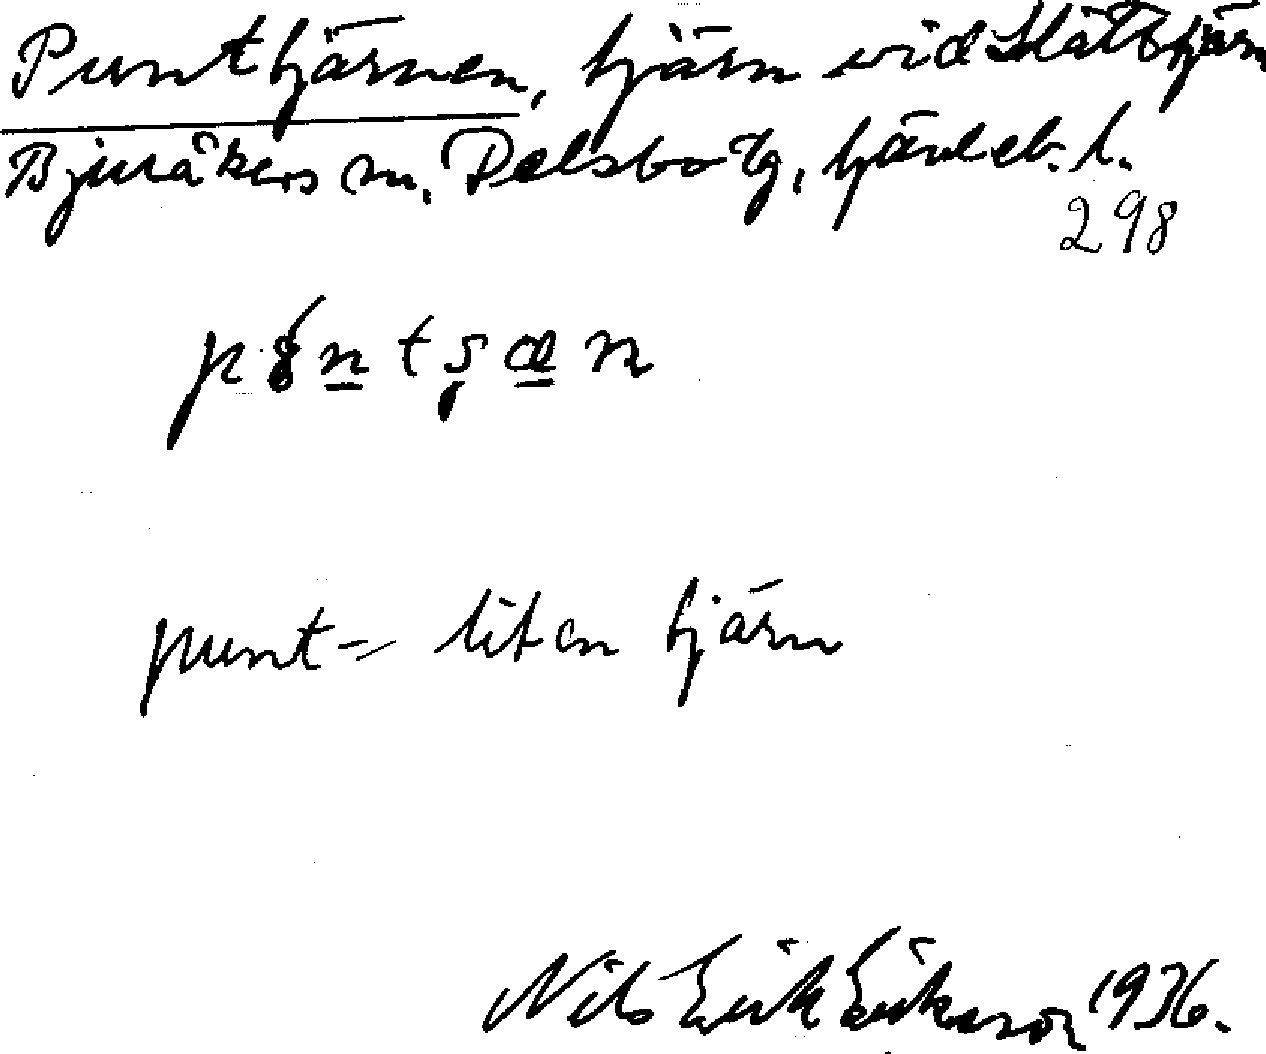 Punttjärnen, tjärn vid Slätttjärn
Bjuråkers sn, Delsbo tg, Gävleb. l.
298
punt = liten tjärn
Nils Erik Eriksson 1936.